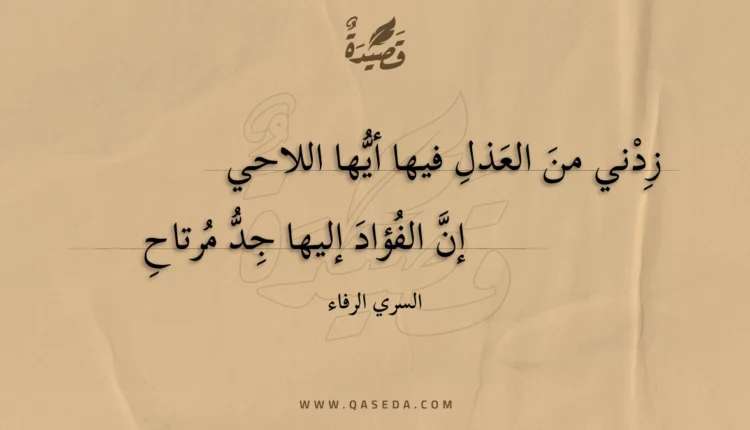 قَصِيْدَةٌ
زِدْني منَ العَذلِ فيها أيُّها اللاحي
إنَّ الفُؤادَ إليها جِدُّ مُرتاحِ
السري الرفاء
WWW.QASEDA.COM